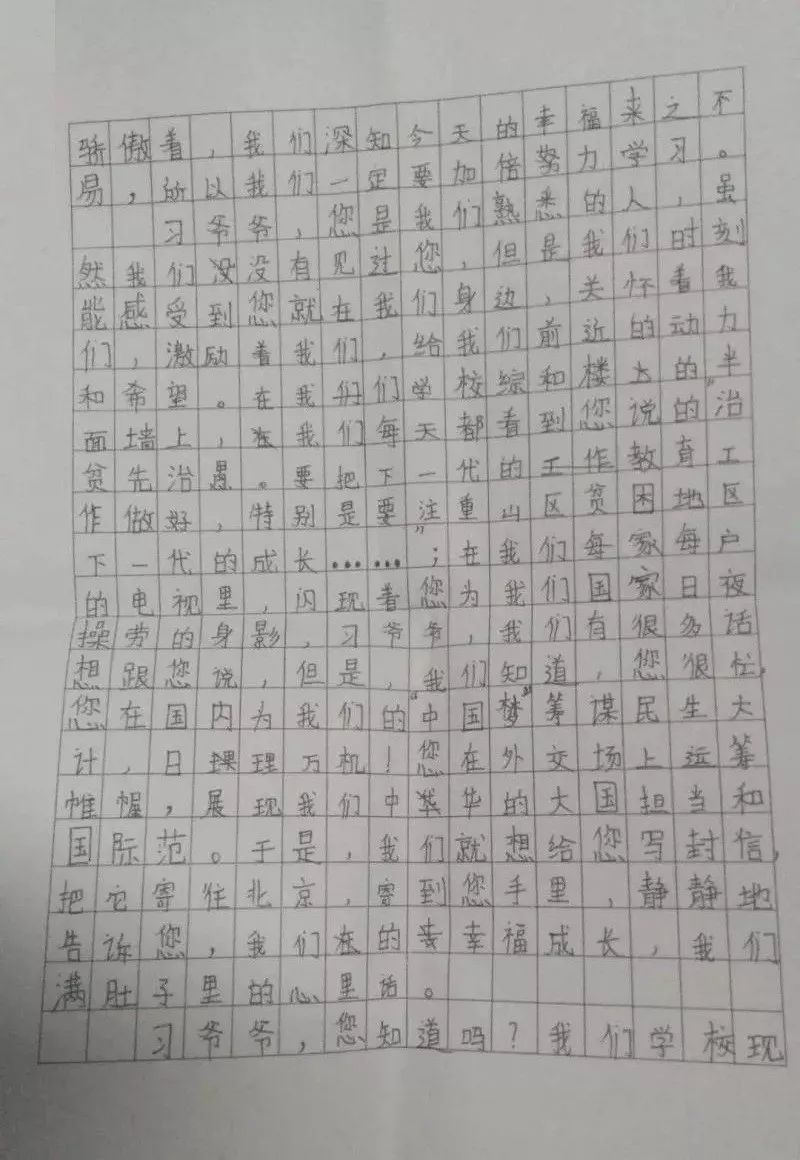 骄傲着，我们深知今天的幸福来之不
易，所以我们一定要加倍努力学习。
习爷爷，您是我们熟悉的人，虽
然我们没没有见过您，但是我们时刻
能感受到您就在我们身边，关怀着我
们，激励着我们，给我们前近的动力
和希望。在我们们学校综和楼大的半
面墙上，在我们每天都看到您说的“治
贫先治愚。要把下一代的工作教育工
作做好，特别是要“注重山区贫困地区
下一代的成长……”；在我们每家每户
的电视里，闪现着您为我们国家日夜
操劳的身影，习爷爷，我们有很多话
想跟您说，但是，我们知道，您很忙，
您在国内为我们的“中国梦”筹谋民生大
计，日理理万机！您在外交场上运筹
帷幄，展现我们中华华的大国担当和
国际范。于是，我们就想给您写封信，
把它寄往北京，寄到您手里，静静地
告诉您，我们在的幸幸福成长，我们
满肚子里的心里话。
习爷爷，您知道吗？我们学校现